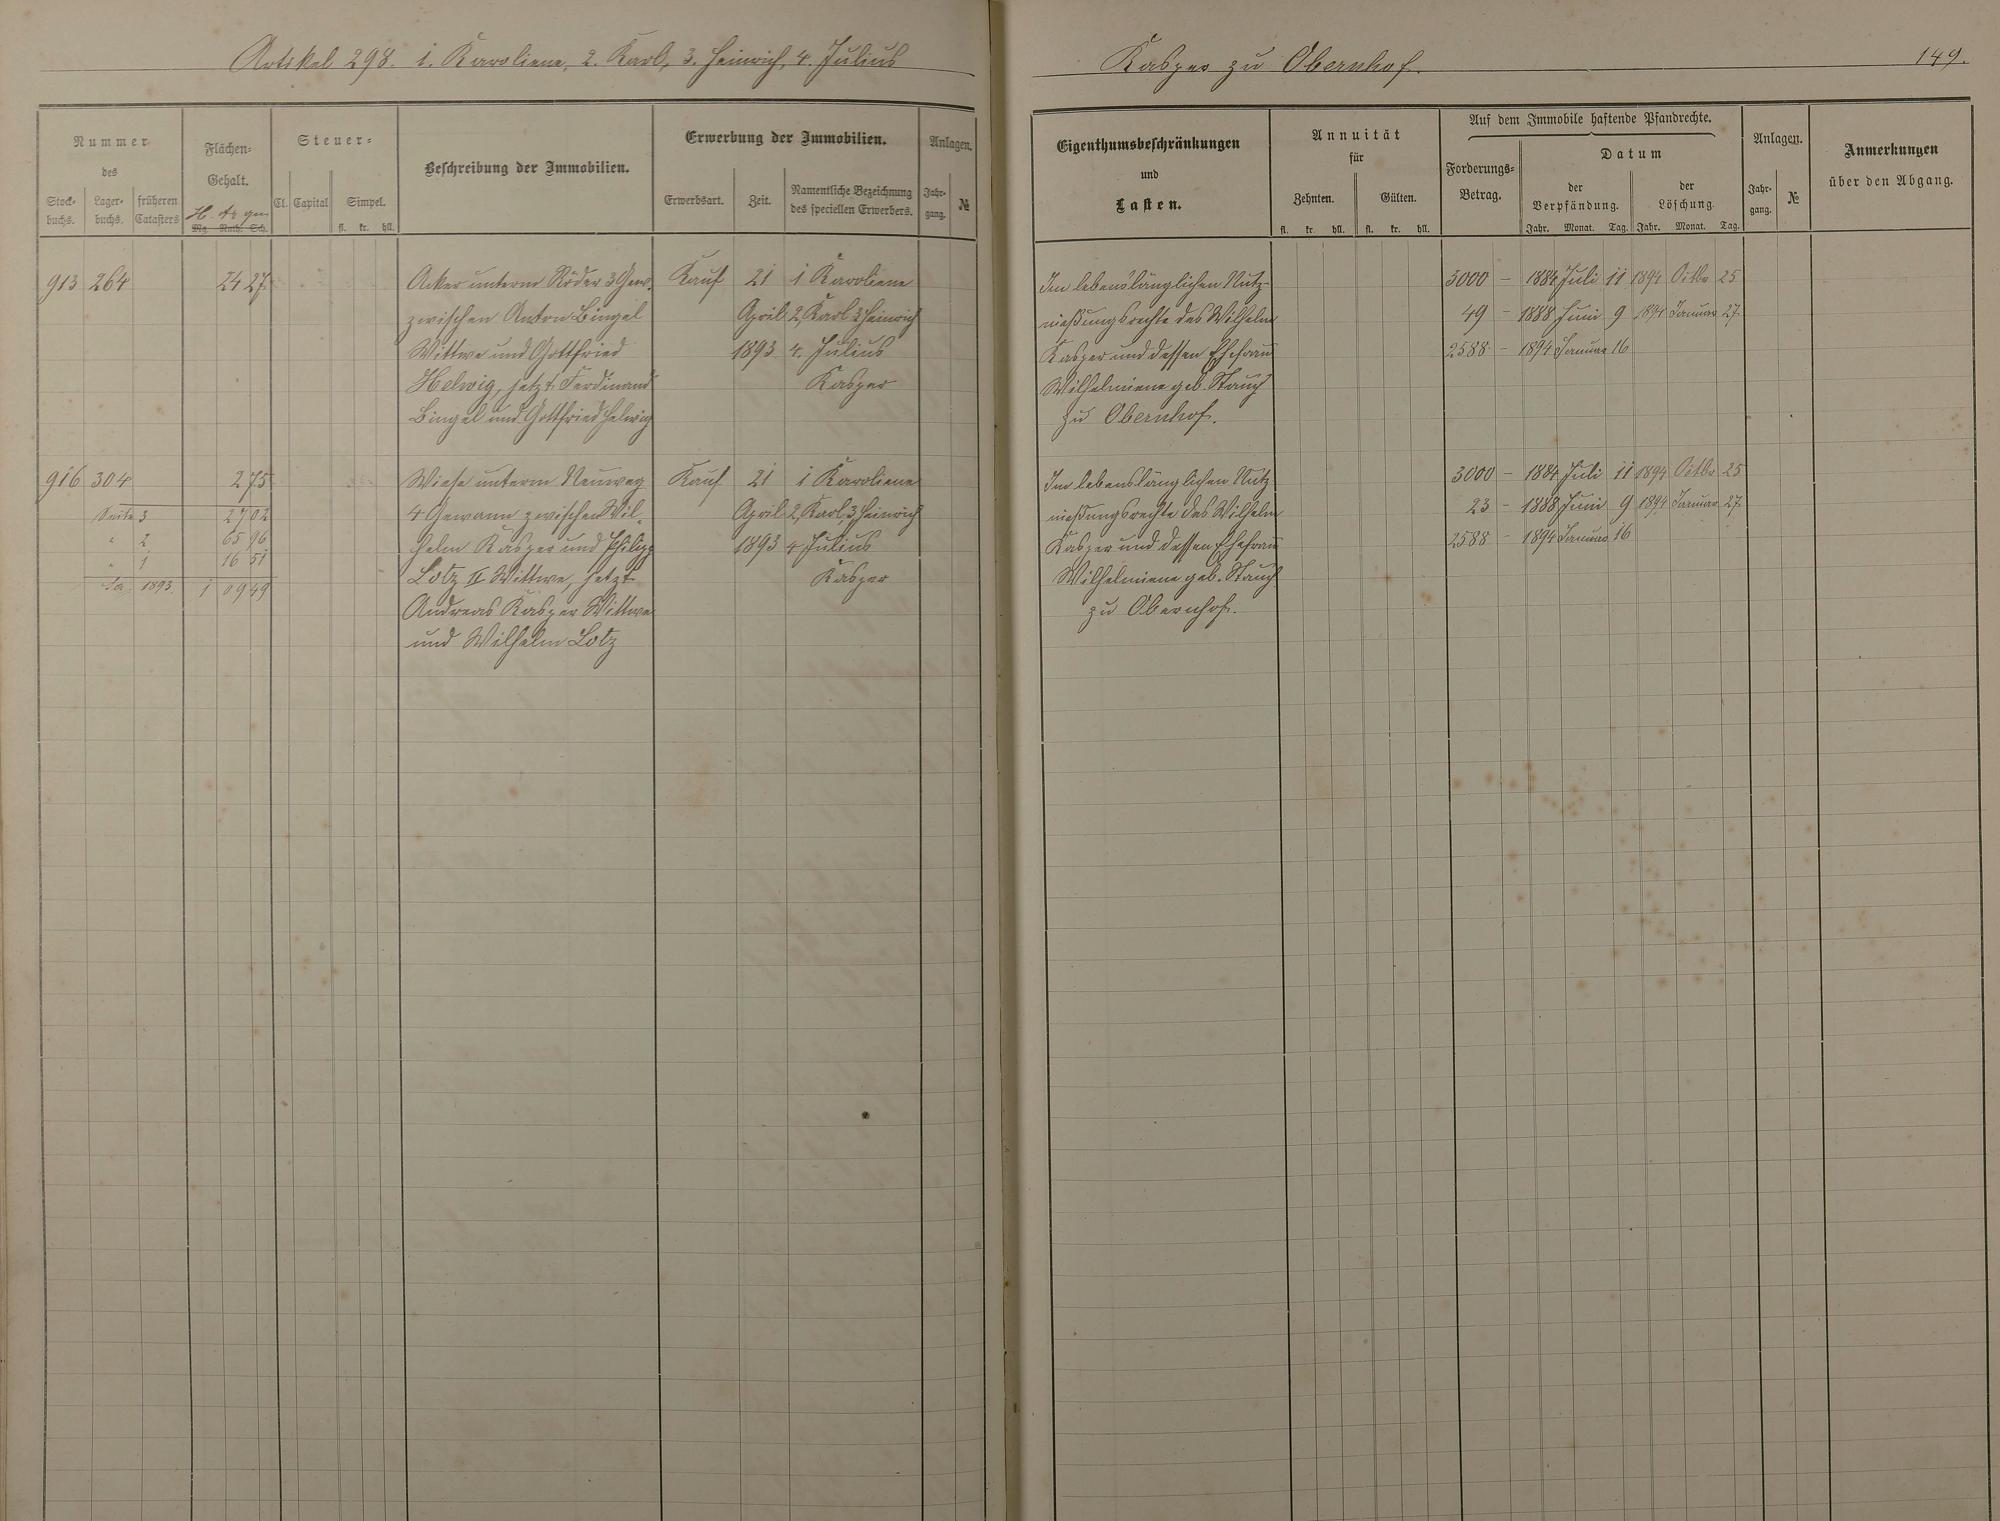 Artikel 298. 1. Karoliene, 2. Karl, 3. Heinrich, 4. Julius
Kasper zu Obernhof.
149.
Nummer
des
Stock-
buchs.
Lager-
buchs.
früheren
Catasters
Flächen-
Gehalt.
H. Ar qm
Mg. Ruth. Sch.
Steuer-
Cl.
Capital
Simpel.
fl. kr. hll.
Beschreibung der Immobilien.
Erwerbung der Immobilien.
Erwerbsart.
Zeit.
Namentliche Bezeichnung
des speciellen Erwerbers.
Anlagen.
Jahr-
gang.
№
Eigenthumsbeschränkungen
und
Lasten.
Annuität
für
Zehnten.
Gülten.
fl. kr. hll. fl. kr. hll.
Auf dem Immobile haftende Pfandrechte.
Forderungs-
Betrag.
Datum
der
Verpfändung.
der
Löschung.
Jahr. Monat. Tag. Jahr. Monat. Tag.
Anlagen.
Jahr-
gang.
№
Anmerkungen
über den Abgang.
913 264 24 27
Acker unterm Röder 3 Gew.
zwischen Anton Bingel
Wittwe und Gottfried
Helwig, jetzt Ferdinand
Bingel und Gottfried Helwig
Kauf
21
April
1893
1 Karoliene
2, Karl 3 Heinrich
4. Julius
Kasper
Im lebenslänglichen Nutz-
nießungsrechte des Wilhelm
Kasper und dessen Ehefrau
Wilhelmiene geb. Stauch
zu Obernhof.
3000 – 1884 Juli 11 1894 Octbr 25
49 – 1888 Juni 9 1894 Januar 27
2588 – 1894 Januar 16
916 304 2 75
Seite 3 27 02
" 2 65 96
" 1 16 51
Sa: 1893. 1 09 49
Wiese unterm Neuweg
4 Gewann zwischen Wil-
helm Kasper und Philipp
Lotz II Wittwe, jetzt
Andreas Kasper Wittwe
und Wilhelm Lotz
Kauf
21
April
1893
1 Karoliene
2, Karl, 3 Heinrich
4, Julius
Kasper
Im lebenslänglichen Nutz-
nießungsrechte des Wilhelm
Kasper und dessen Ehefrau
Wilhelmiene geb. Stauch
zu Obernhof.
3000 – 1884 Juli 11 1894 Octbr 25
23 – 1888 Juni 9 1894 Januar 27
2588 – 1894 Januar 16